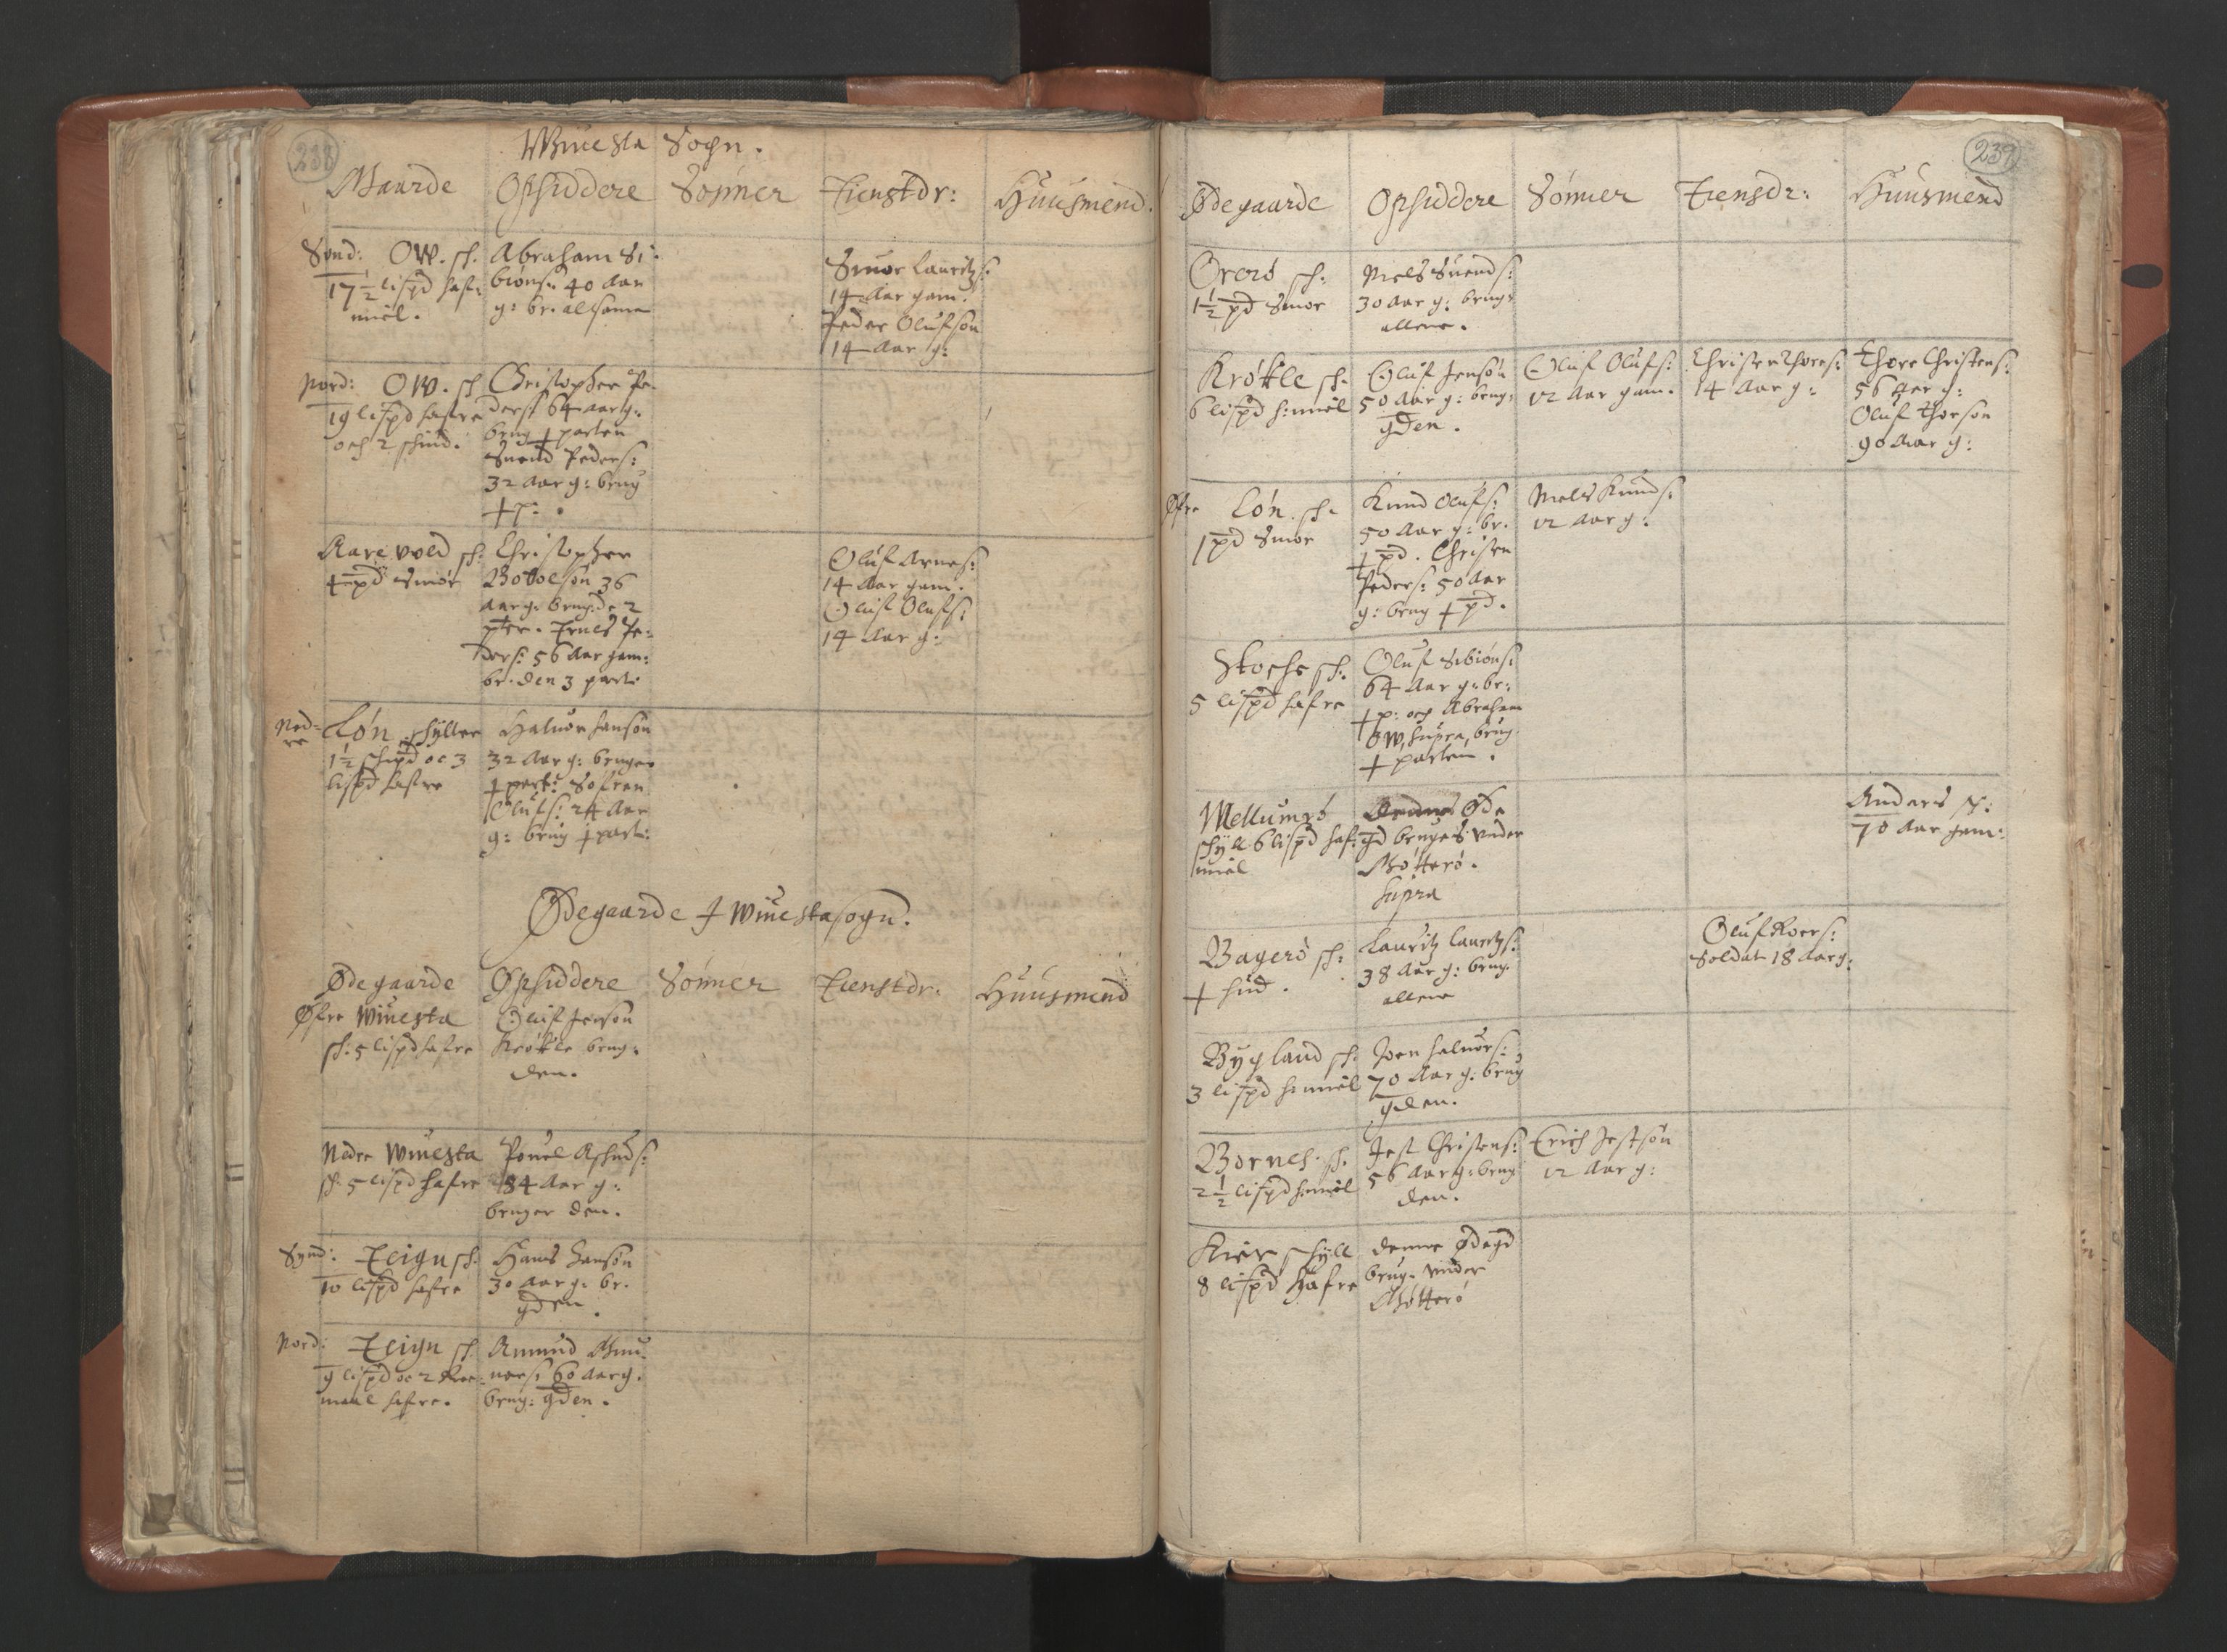 238
Winesta Sogn.
Gaarde Opsiddere Sønner Tienstdr: Huusmend.
Sønd: OW. sk.
17 1/2 lispd hafr
miel.
Abraham Si-
biønsøn 40 aar
g: br. allsame
Lauritzs:
14 Aar gam.
Peder Olufsøn
14 Aar g:
Nord: OW. sk
19 lispd hafre
och 2 skind.
Christopher Pe-
ders: 64 aar g.
brug ½ parten
Suend Peders:
32 Aar g: brug
½ p:
Rarevold sk:
½ pd Smør
Christopher
Botolsøn 36
Aar g. brug. de 2
pter. Pe-
ders: 56 Aar gam:
br. den 3 part.
Oluf Arnes:
14 Aar gam.
Oluf Olufs:
14 Aar g:
Ned-
re Løn skylter
1 1/2 skipd oc 3
lispd hafre
Haluor Hansøn
32 Aar g: bruger
½ part: Søfren
Olufs: 24 Aar
g: brug ½ part:
Ødegaarde J Winesta sogn.
Ødegaarde Opsiddere Sønner Tienstdr. Huusmend
Øfre Winesta
sk: 5 lispd hafre
Oluf Jensøn
Krøkle brug.
den.
Nedre Winesta
sk. 5 lispd hafre
Pouel
84 Aar g:
bruger den.
Synd: Teign sk.
10 lispd hafre
Hans Hansøn
30 Aar g. br.
gden.
Nord: Teign sk
9 lispd oc 2
maal hafre.
Amund Gun-
ners: 60 Aar g.
brug: gden.
239
Ødegaarde Opsiddere Sønner Tiensdr: Huusmend
Ørerø sk:
1 1/2 pd Smør
Niels Suends:
30 Aar g: brug:
allene.
Krøkle sk.
6 lispd h:miel
Oluf Jensøn
50 Aar g: brug:
gden.
Oluf Olufs:
12 Aar gam.
Christen Thores:
14 Aar g:
Thore Christens:
56 Aar g:
Oluf Thorsøn
90 Aar g:
Øfre Løn. sk.
1 pd Smør
Knud Olufs:
50 Aar g: br.
½ pd. Christen
Peders: 50 Aar
g: brug ½ pd.
Niels Knuds:
12 Aar g:
Stochs sk:
5 lispd hafre
Oluf Sibiøns:
64 Aar g: br:
½ p: och Abraham
OW, supra, brug
½ parten.
Mellumrø
skyll 6 lispd haf:
miel
Øde
gd bruges vnder
Gotterø.
supra
Anders sk:
70 Aar gam:
Bagerø sk:
½ hud.
Lauritz Lauritzs:
38 Aar g: brug.
allene
Oluf Roers:
Soldat 18 Aar g.
Bygland sk:
3 lispd h:miel
Joen Haluors:
70 Aar g: brug
gden.
Bornes. sk.
2 1/2 lispd h:miel
Jest Christens:
56 Aar g: brug
den.
Erich Jestsøn
12 Aar g:
Kier skyll
8 lispd Hafre
denne Ødegd
brug. vnder
Gotterø